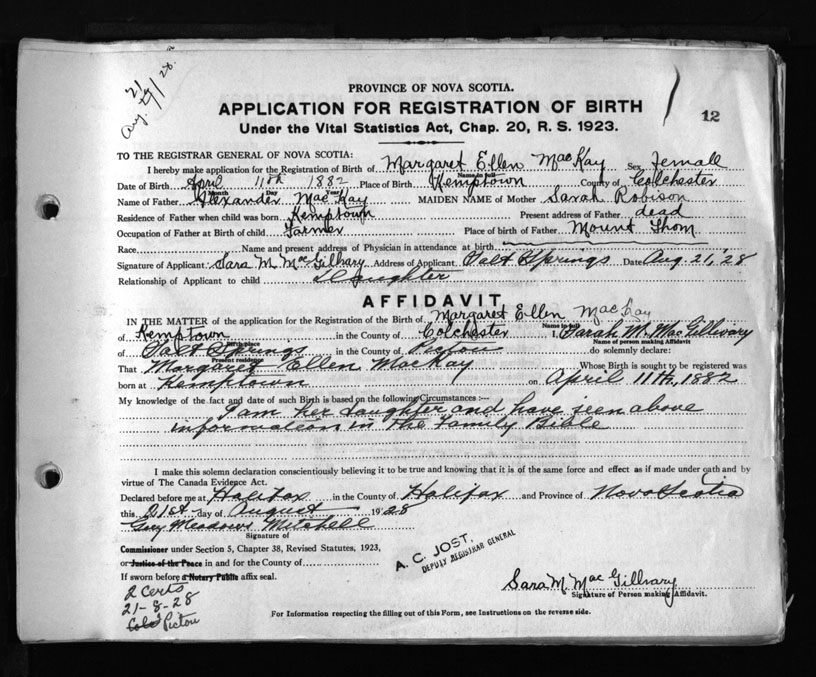 Aug 21/28
12
PROVINCE OF NOVA SCOTIA.
APPLICATION FOR REGISTRATION OF BIRTH
Under the Vital Statistics Act, Chap. 20, R. S. 1923.
TO THE REGISTRAR GENERAL OF NOVA SCOTIA:
I hereby make application for the Registration of Birth of Margaret Ellen MacKay Sex Female
Name in full
Date of Birth April 11th 1882 Place of Birth Kemptown County of Colchester
Month Day Year
Name of Father Alexander MacKay MAIDEN NAME of Mother Sarah Robison
Residence of Father when child was born Kemptown Present address of Father dead
Occupation of Father at Birth of child Farmer Place of birth of Father Mount Thom
Race Name and present address of Physician in attendance at birth
Signature of Applicant Sara M. MacGillvary Address of Applicant Salt Springs Date Aug 21, '28
Relationship of Applicant to child Daughter
AFFIDAVIT
IN THE MATTER of the application for the Registration of the Birth of Margaret Ellen MacKay
Name in full
of Kemptown in the County of Colchester I, Sarah M. MacGillvary
Birth place Name of person making Affidavit
of Salt Springs in the County of Pictou do solemnly declare:
Present residence
That Margaret Ellen MacKay Whose Birth is sought to be registered was
born at Kemptown on April 11th, 1882
My knowledge of the fact and date of such Birth is based on the following Circumstances :—
I am her daughter and have seen above
information in the Family Bible
I make this solemn declaration conscientiously believing it to be true and knowing that it is of the same force and effect as if made under oath and by
virtue of The Canada Evidence Act.
Declared before me at Halifax in the County of Halifax and Province of Nova Scotia
this 21st day of August 1928
Guy Meadows Mitchell
Signature of
Commissioner under Section 5, Chapter 38, Revised Statutes, 1923,
or Justice of the Peace in and for the County of
If sworn before a Notary Public affix seal.
A. C. JOST,
DEPUTY REGISTRAR GENERAL
2 Certs
21-8-28
Cols Pictou
Sara M. MacGillvary
Signature of Person making Affidavit.
For Information respecting the filling out of this Form, see Instructions on the reverse side.